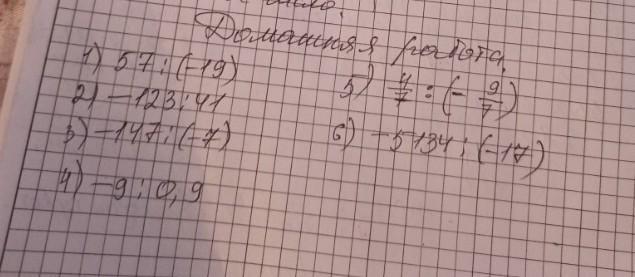 Домашняя работа.
1) 57 : (-19)
2) -123 : 41
3) -147 : (-7)
4) -9 : 0,9
5) 4/7 : (- 9/7)
6) -5134 : (-17)